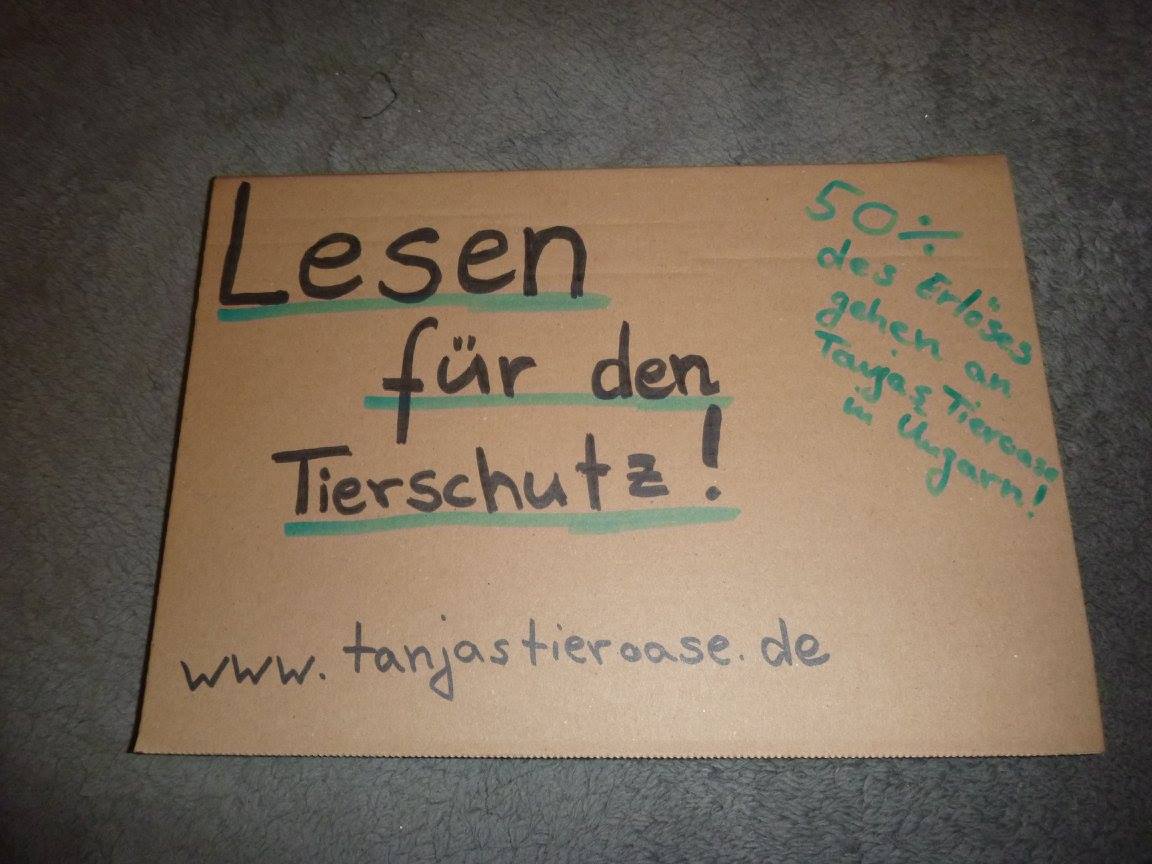 Lesen
für den
Tierschutz!
50%
des Erlöses
gehen an
Tanjas Tieroase
in Ungarn!
www.tanjastieroase.de